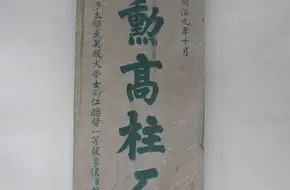 同治九年十月
勳高柱石
太保武英殿大學士兩江總督一等毅勇侯